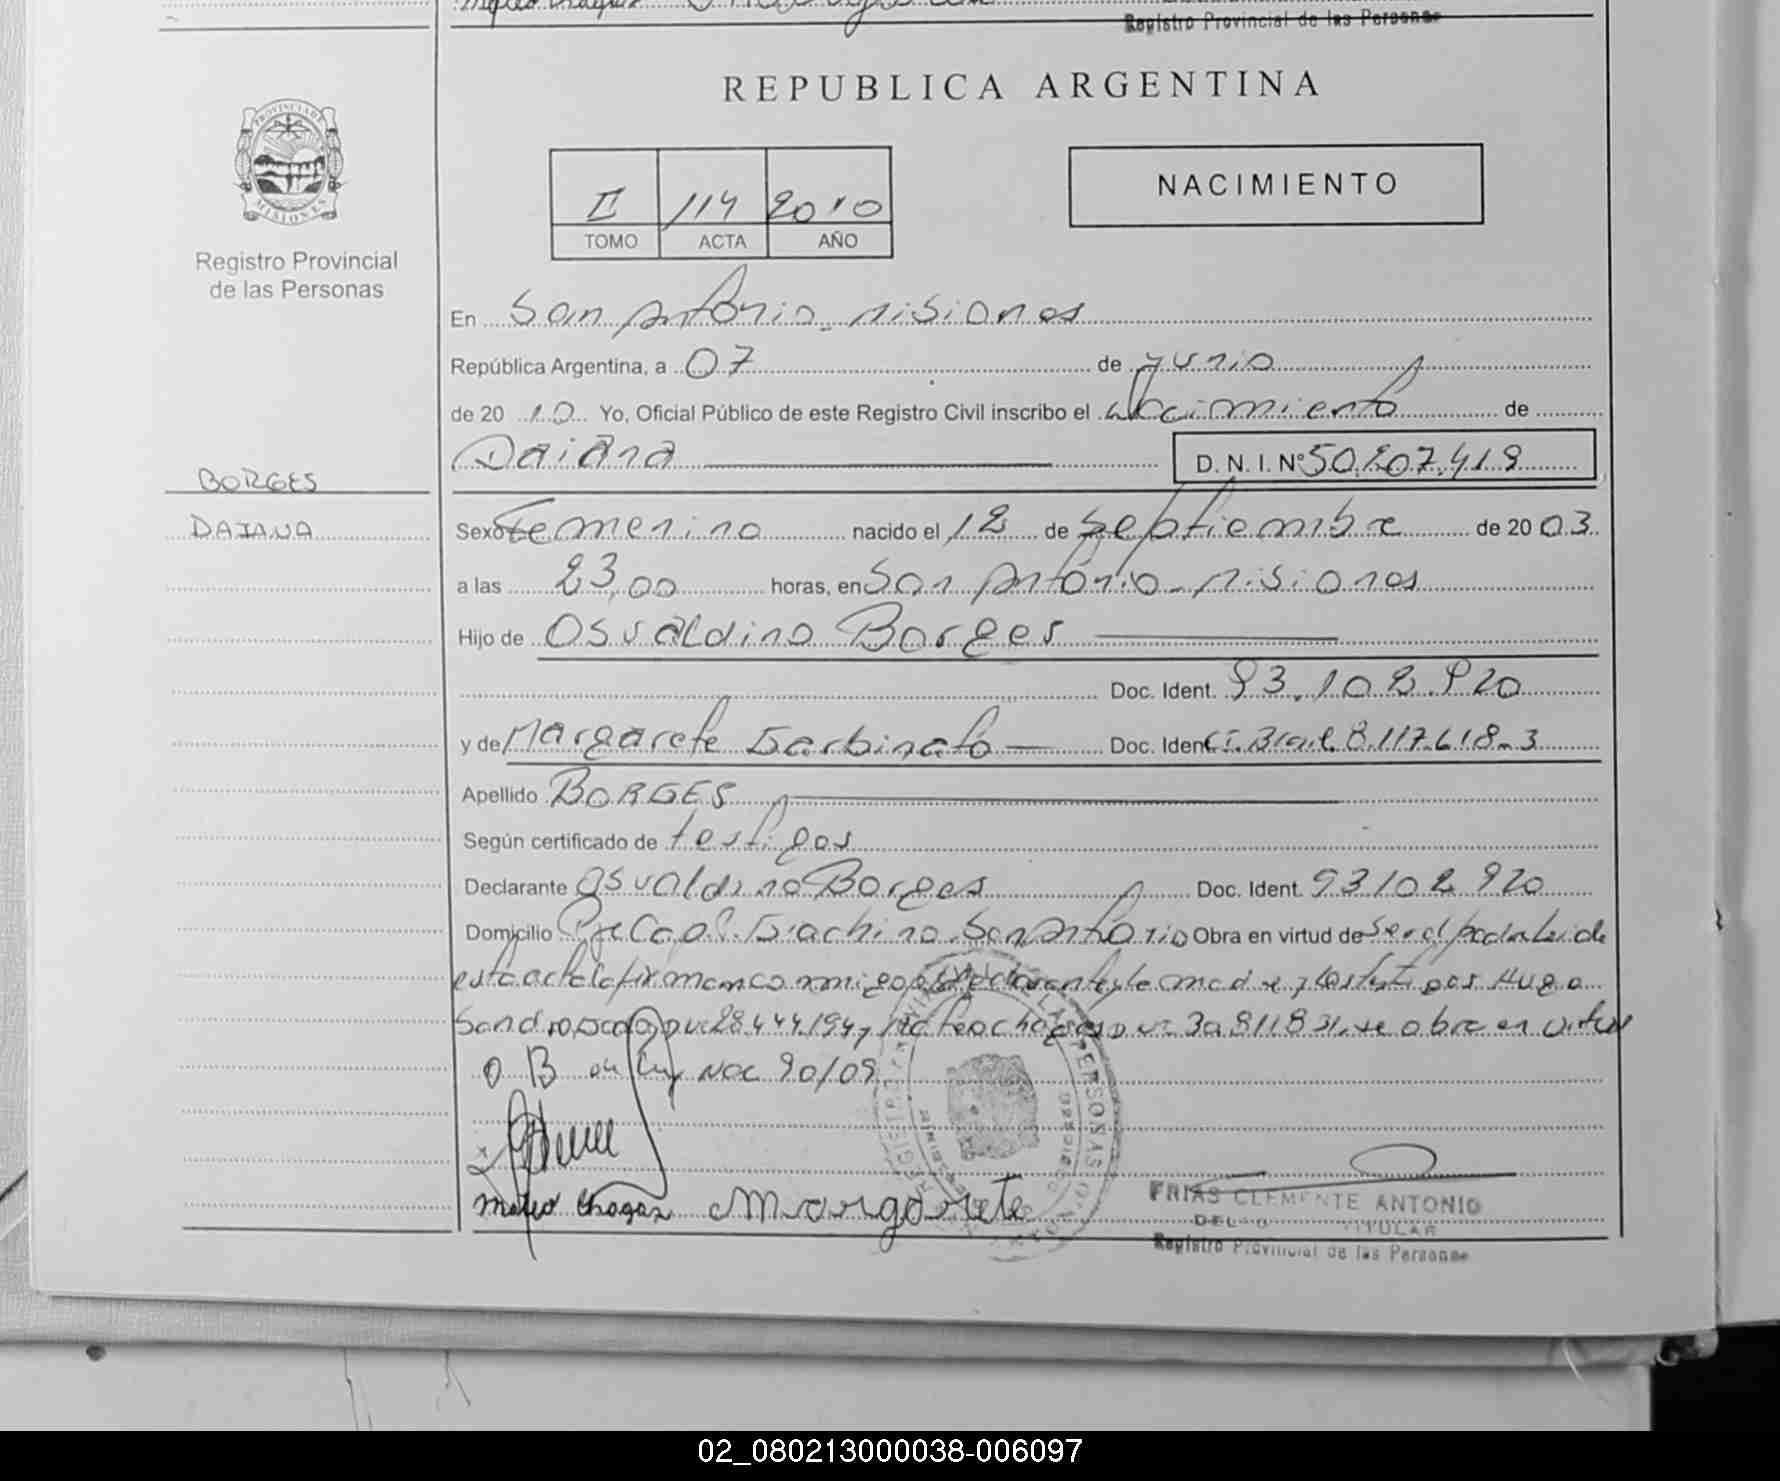 Registro Provincial de las Persona
REPUBLICA ARGENTINA
PROVINCIA DE
MISIONES
Registro Provincial
de las Personas
II 114 2010
TOMO ACTA AÑO
NACIMIENTO
En San Antonio Misiones
República Argentina, a 07 de Junio
de 20 10 Yo, Oficial Público de este Registro Civil inscribo el Nacimiento de
Daiana D. N. I. Nº 50.207.419
BORGES
DAIANA
Sexo Femenino nacido el 12 de Septiembre de 20 03
a las 23,00 horas, en San Antonio - Misiones
Hijo de Osvaldino Borges
Doc. Ident. 93.102.920
y de Margarete Doc. Ident C.I. Brasil 8.117.618-3
Apellido BORGES
Según certificado de testigos
Declarante Osvaldino Borges Doc. Ident. 93102920
Domicilio San Antonio Obra en virtud de Ser el padre Leida
esta acta la firman conmigo el declarante y la madre y los testigos Hugo
Sandro 28.444.194 y Mateo Chagas 30.811.831, se obra en virtud
O B de Ley Nac 90/09
Mateo Chagas Margarete
FRIAS CLEMENTE ANTONIO
TITULAR
Registro Provincial de las Persona
02_080213000038-006097